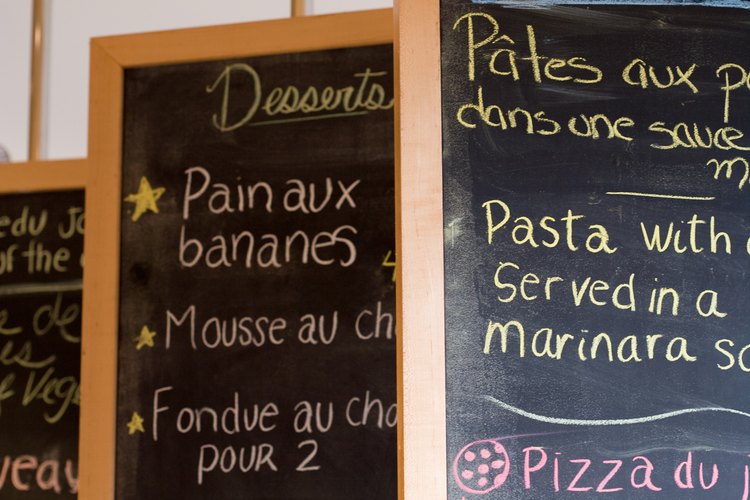 edu
of the
de
Veg
Desserts
Pain aux
bananes
Mousse au
Fondue au
pour 2
Pâtes aux
dans une sauce
Pasta with
Served in a
marinara
Pizza du